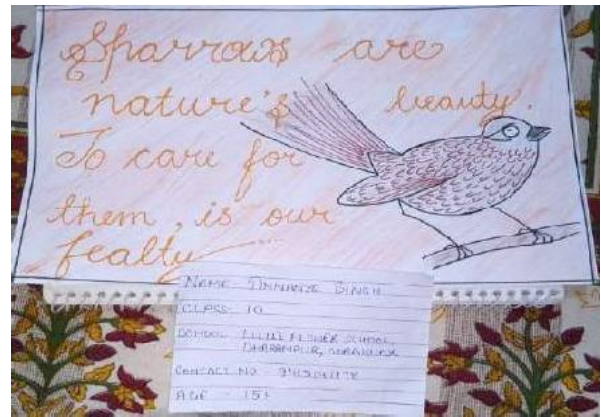 Sparrows are
nature's beauty.
To care for
them, is our
fealty
NAME - SINGH
CLASS- 10
SCHOOL FLOWER SCHOOL,
DHARAMPUR,
CONTACT NO -
AGE - 15+